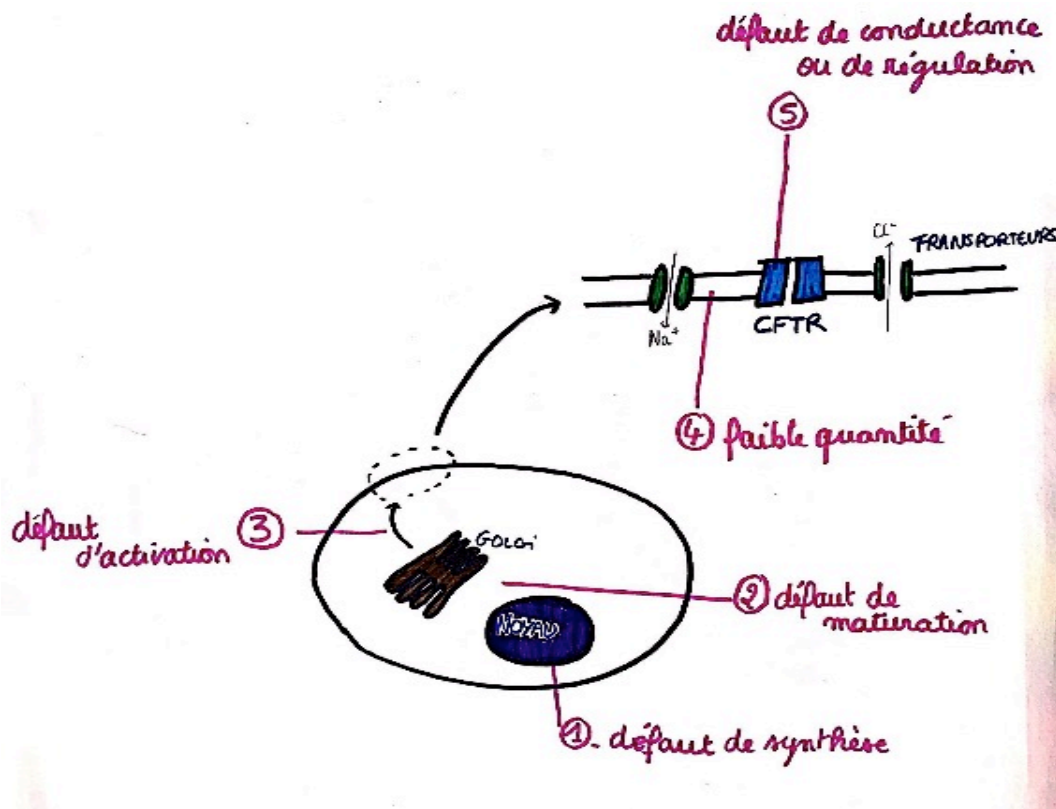 défaut de conductance
ou de régulation
5
Cl-
TRANSPORTEURS
Na+
CFTR
4 faible quantité
défaut
d'activation 3
GOLGI
2 défaut de
maturation
NOYAU
1. défaut de synthèse